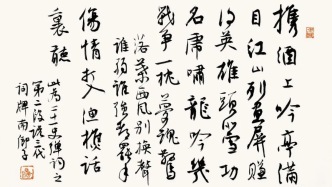 携酒上吟亭满
目江山列画屏赚
得英雄头似雪功
名虎啸龙吟几
战争一枕梦魂惊
落叶西风别换声
谁弱谁强都罢手
伤情打入渔樵话
里听
此为二十一史弹词之
第二段说三代
词牌南乡子